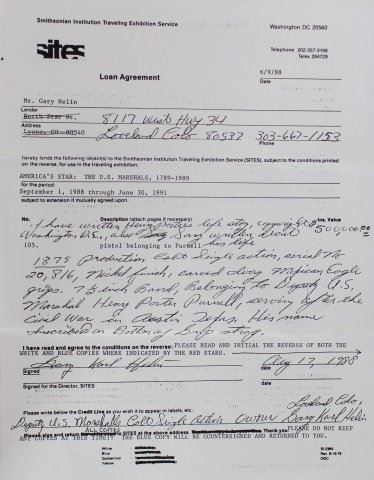 Smithsonian Institution Traveling Exhibition Service
Washington DC 20560
sites
Telephone 202-357-3168
Telex 264729
Loan Agreement
6/9/88
Date
Mr. Gary Helin
Lender
North Star Rt.
8117 West Hwy 34
Address
Lyons, CO 80540
Loveland Colo 80537 303-667-1153
Phone
hereby lends the following object(s) to the Smithsonian Institution Traveling Exhibition Service (SITES), subject to the conditions printed
on the reverse, for use in the traveling exhibition:
AMERICA'S STAR: THE U.S. MARSHALS, 1789-1989
for the period:
September 1, 1988 through June 30, 1991
subject to extension if mutually agreed upon.
No. Description (attach pages if necessary) Ins. Value
I have written Henry Porters life story copyright
Washington D.C., also Song written about 500,000.00
105. pistol belonging to Purnell his life
1875 production Colt Single action, serial No
20,816, Nickel finish, carved Ivory Mexican Eagle
grips. 7½ inch Belonging to Deputy U.S.
Marshal Henry Porter Purnell, serving after the
Civil War in Austin Texas, His name
inscribed on Bottom of Grip strap.
I have read and agree to the conditions on the reverse: PLEASE READ AND INITIAL THE REVERSE OF BOTH THE
WHITE AND BLUE COPIES WHERE INDICATED BY THE RED STARS.
Gary Karl Helin
Aug 17, 1988
Signed
date
Signed for the Director, SITES
date
Please write below the Credit Line as you wish it to appear in labels, etc.:
Loveland Colo,
Deputy U.S. Marshalls Colt Single Action Owner Gary Karl Helin
ALL COPIES
Please sign and return at the above address. Thank you. PLEASE DO NOT KEEP
ANY COPIES AT THIS TIME!! THE BLUE COPY WILL BE COUNTERSIGNED AND RETURNED TO YOU.
White
Blue
Goldenrod
Yellow
OGC